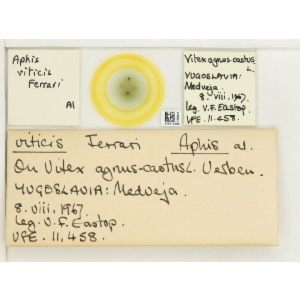 Aphis
viticis
Ferrari
Al
Vitex agnus-castus
L.
YUGOSLAVIA:
Medveja
8. viii. 1967.
leg. V.F. Eastop.
VFE. 11.458.
viticis Ferrari Aphis al.
On Vitex agnus-castus L. Verben.
YUGOSLAVIA: Medveja.
8. viii. 1967.
leg. V.F. Eastop.
VFE. 11.458.